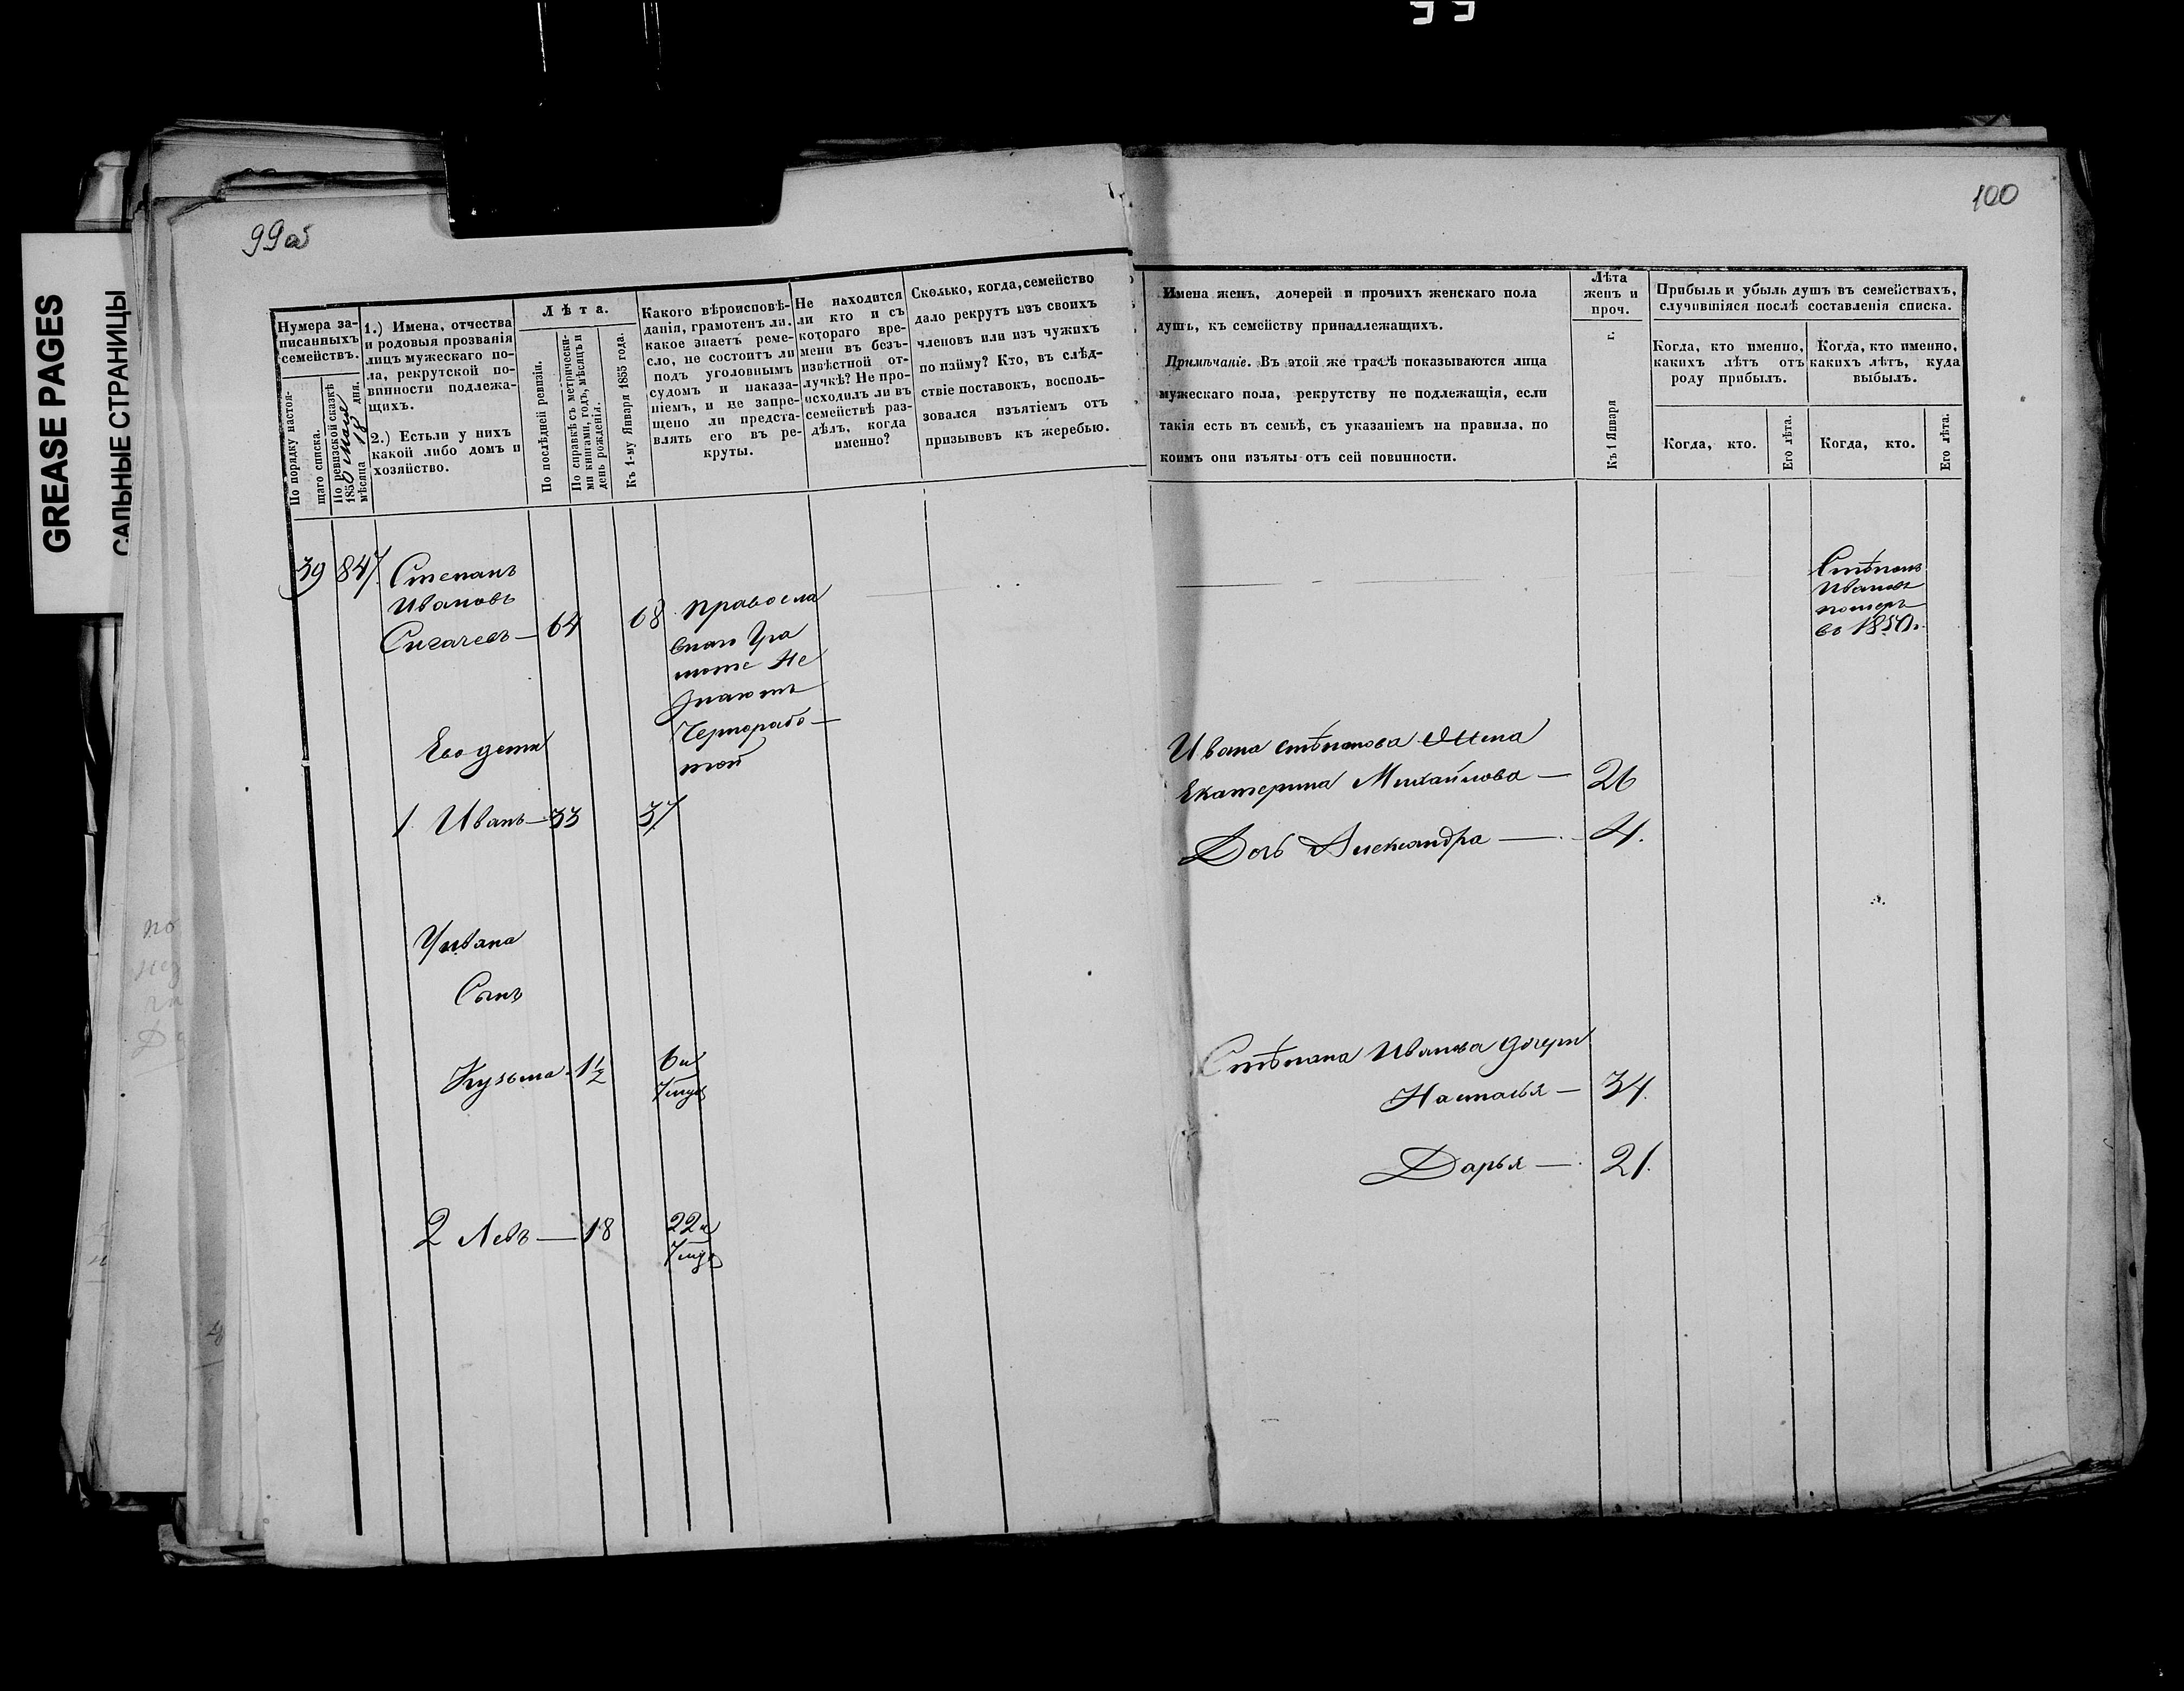 99
GREASE PAGES
САЛЬНЫЕ СТРАНИЦЫ
99об
Нумера за-
писанныхъ
семействъ.
По порядку настоя-
щаго списка.
По ревизской сказкѣ
1850 Мая
мѣсяца 18 дня.
1.) Имена, отчества
и родовыя прозванія
лицъ мужескаго по-
ла, рекрутской по-
винности подлежа-
щихъ.
2.) Естьли у нихъ
какой либо домъ и
хозяйство.
Лѣта.
По послѣдней ревизіи.
По справкѣ съ метрически-
ми книгами, годъ, мѣсяцъ и
день рожденія.
Къ 1-му Января 1855 года.
Какого вѣроисповѣ-
данія, грамотенъ ли.
какое знаетъ реме-
сло, не состоитъ ли
подъ уголовнымъ
судомъ и наказа-
ніемъ, и не запре-
щено ли предста-
влять его въ ре-
круты.
Не находится
ли кто и съ
котораго вре-
мени въ безъ-
извѣстной от-
лучкѣ? Не про-
исходилъ ли въ
семействѣ раз-
дѣлъ, когда
именно?
Сколько, когда, семейство
дало рекрутъ изъ своихъ
членовъ или изъ чужихъ
по найму? Кто, въ слѣд-
ствіе поставокъ, восполь-
зовался изъятіемъ отъ
призывовъ къ жеребью.
39 847 Степанъ
Ивановъ
Сигачевъ — 64 68
Правосла
внаго Гра
моте Не
Знаютъ
Чернорабо-
той
Его дети
1. Иванъ — 33 37
У Ивана
Сынъ
Кузьма - 1½ 6 и
7 мѣ
2 Левъ — 18 22 и
7 мѣ
100
Имена женъ, дочерей и прочихъ женскаго пола
душъ, къ семейству принадлежащихъ.
Примѣчаніе. Въ этой же графѣ показываются лица
мужескаго пола, рекрутству не подлежащія, если
такія есть въ семьѣ, съ указаніемъ на правила, по
коимъ они изъяты отъ сей повинности.
Лѣта
женъ и
проч.
Къ 1 Января г.
Прибыль и убыль душъ въ семействахъ,
случившіяся послѣ составленія списка.
Когда, кто именно,
какихъ лѣтъ отъ
роду прибылъ.
Когда, кто именно,
какихъ лѣтъ, куда
выбылъ.
Когда, кто.
Его лѣта.
Когда, кто.
Его лѣта.
Стѣпанъ
Ивановъ
померъ
въ 1850г.
Ивана Стѣпанова Жена
Екатерина Михайлова — 26
Дочь Александра — 4.
Стѣпана Иванова дочери
Насталья — 34.
Дарья — 21.